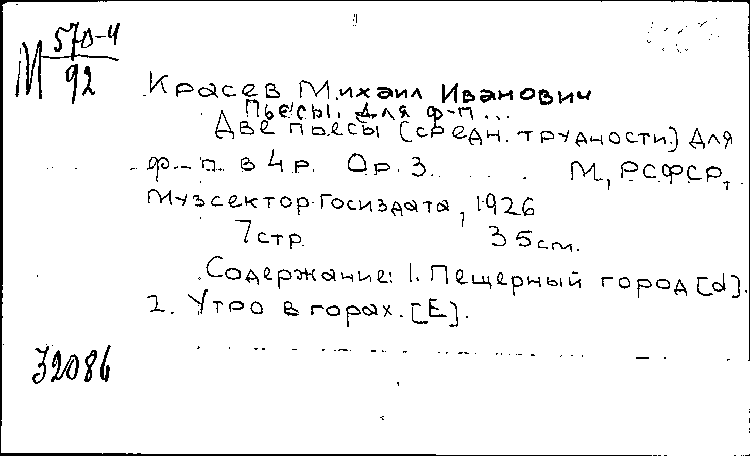 М 570-4
92
Красев Михаил Иванович
Пьесы. для ф-п...
Две пьесы (средн. трудности) для
ф-п. в 4 р. Ор. 3. М, РСФСР,
Музсектор Госиздата, 1926
7 стр. 35 см.
Содержание: 1. Пещерный город [d].
2. Утро в горах. [E].
32086